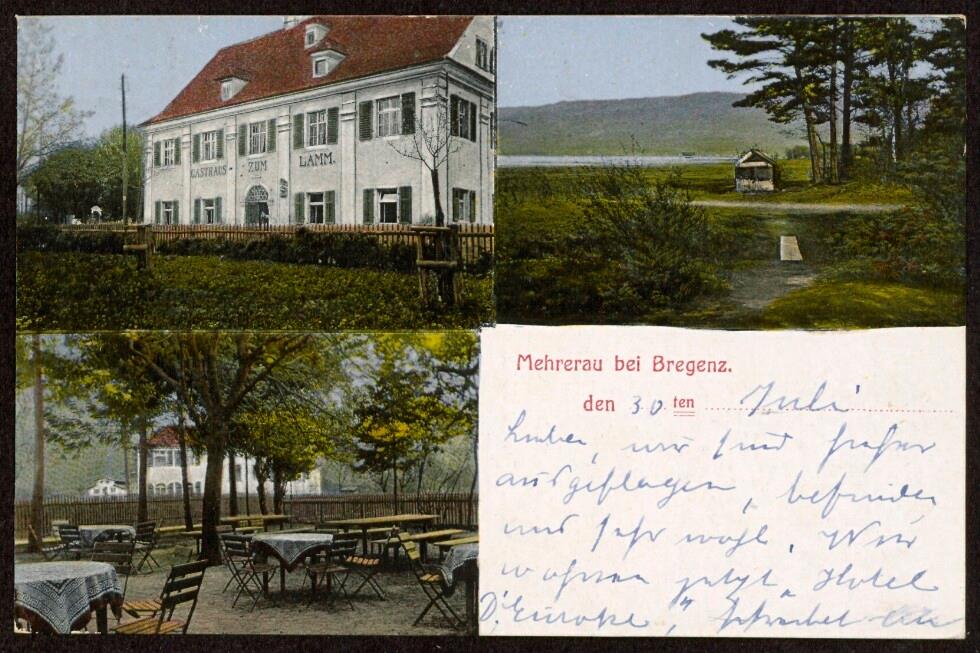 GASTHAUS ZUM LAMM.
Mehrerau bei Bregenz.
den 30 ten Juli
wir sind
ausgeflogen, befinden
uns sehr wohl. Wir
wohnen jetzt „Hotel
D'Europe", schreibet